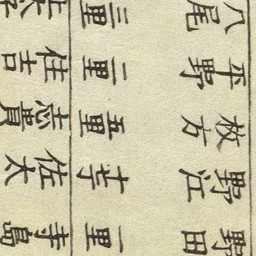 野田 一里 寺島
野江 佐太
枚方 五里 志貴
平野 二里 住吉
八尾 三里